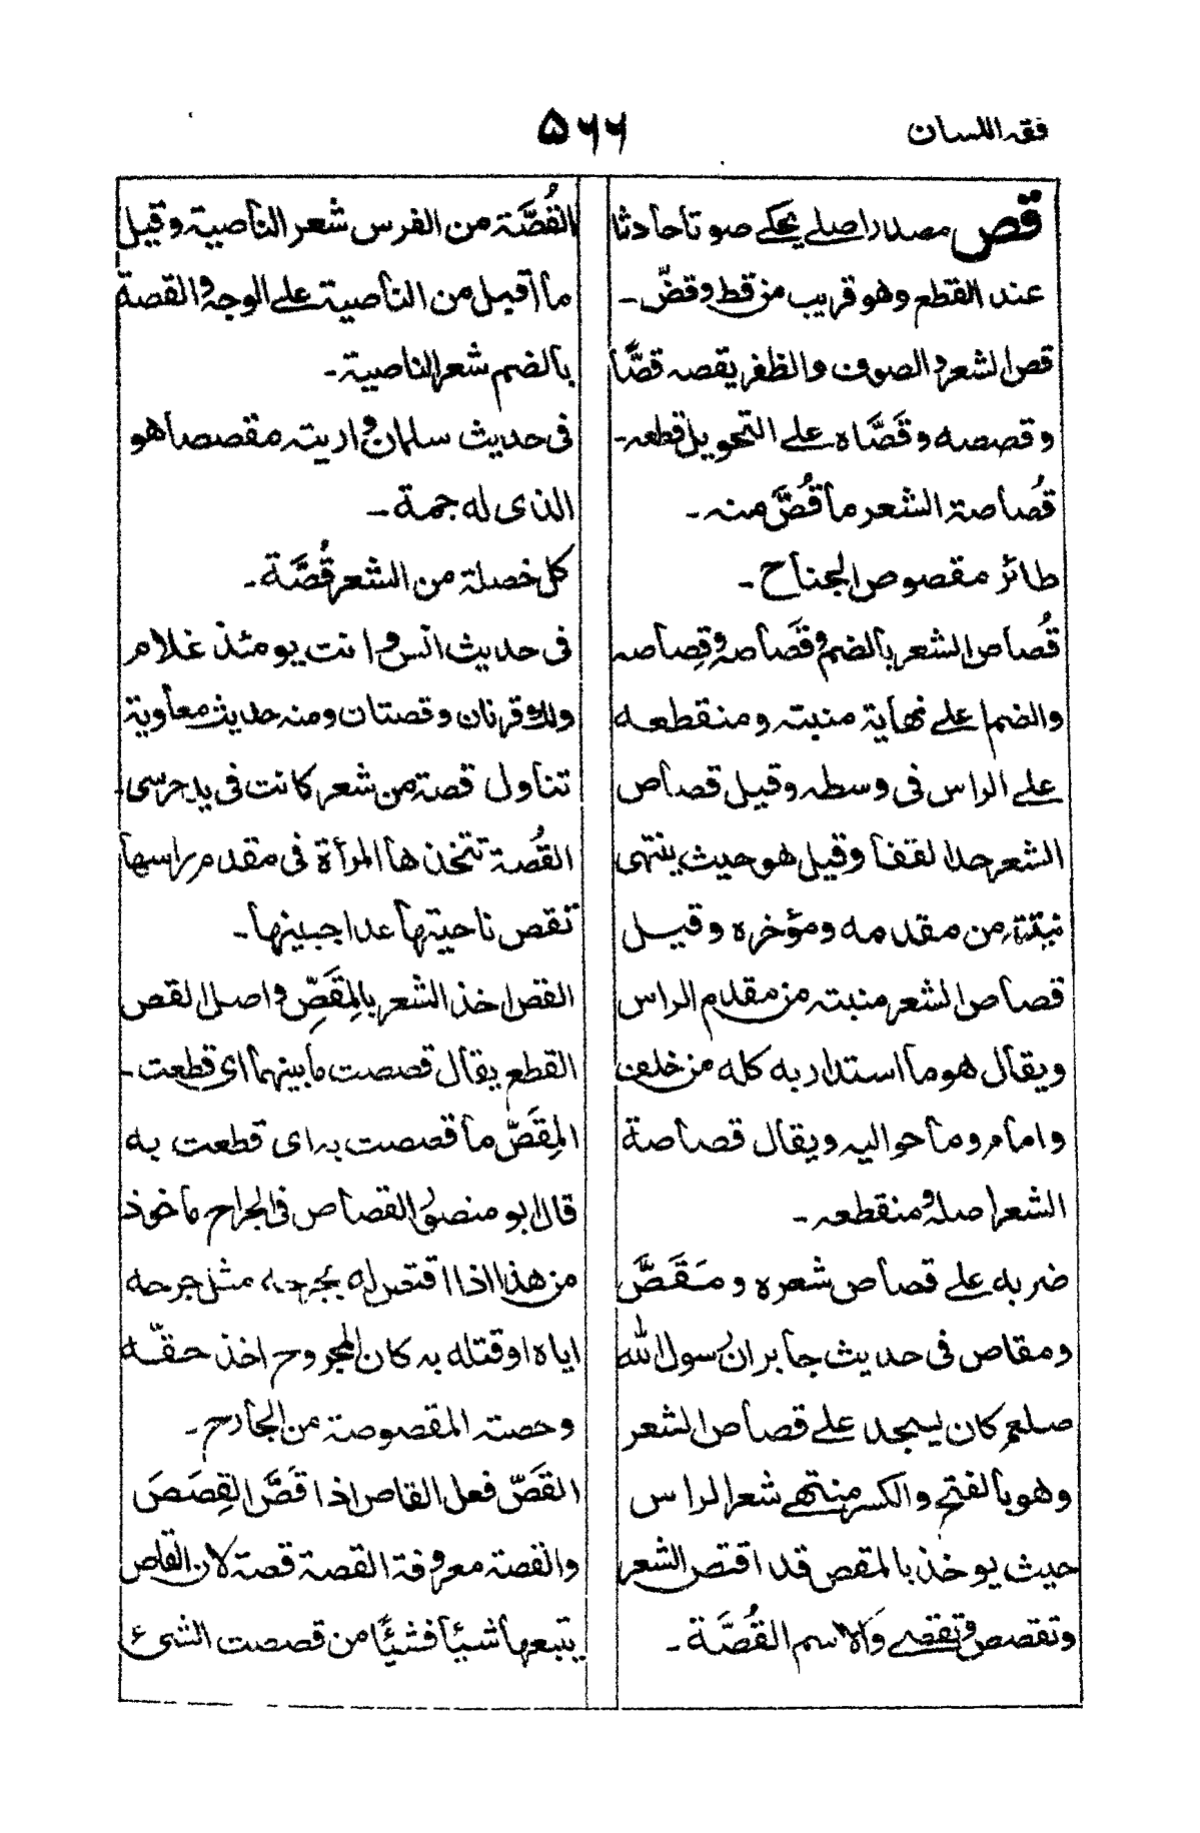 فقہ اللسان
۵۶۶
قص مصدر اصلے یحکے صوتا حادثا
عند القطع وھو قریب من قط وقضّ ـ
قص الشعر و الصوف والظفر یقصہ قصًّا
وقصصہ وقَصَّاہ علے التحویل قطعہ ـ
قُصاصة الشعر ما قُصَّ منہ ـ
طائر مقصوص الجناح ـ
قُصاص الشعر بالضم وقَصَاصہ وقِصاصہ
والضم اعلے نھایة منبتہ ومنقطعہ
علے الراس فی وسطہ وقیل قصاص
الشعر حد القفا وقیل ھو حیث ینتھی
نبتتہ من مقدمہ ومؤخرہ وقیل
قصاص الشعر منبتہ من مقدم الراس
ویقال ھو ما استدار بہ کلہ من خلف
وامام وما حوالیہ ویقال قصاصة
الشعر اصلہ ومنقطعہ ـ
ضربہ علے قصاص شعرہ ومَقَصَّ
ومقاص فی حدیث جابر ان رسول اللہ
صلعم کان یسجد علے قصاص الشعر
وھو بالفتح والکسر منتھے شعر الراس
حیث یوخذ بالمقص قد اقتص الشعر
وتقصص وتقصے والاسم القُصَّة ـ
القُصَّة من الفرس شعر الناصیة وقیل
ما اقبل من الناصیة علے الوجہ والقصة
بالضم شعر الناصیة ـ
فی حدیث سلمان واریتہ مقصصا ھو
الذی لہ جمة ـ
کل خصلة من الشعر قُصَّة ـ
فی حدیث انس وانت یومئذ غلام
ولک قرنان وقصتان ومنہ حدیث معاویة
تناول قصة من شعر کانت فی ید حرسی
القُصة تتخذھا المرأة فی مقدم راسھا
تقص ناحیتھا عدا جبینھا ـ
القص اخذ الشعر بالمِقَصِّ واصل القص
القطع یقال قصصت ما بینھما ای قطعت ـ
المِقَصّ ما قصصت بہ ای قطعت بہ
قال ابو منصور القصاص فی الجراح ماخوذ
من ھذا اذا اقتص لہ بجرحہ مثل جرحہ
ایاہ او قتلہ بہ کان المجروح اخذ حقّہ
وحصتہ المقصوصة من الجارح ـ
القَصّ فعل القاص اذا قَصَّ القِصَصَ
والقصة معروفة القصة قصة لان القاص
یتبعھا شیئا فشیئًا من قصصت الشیء